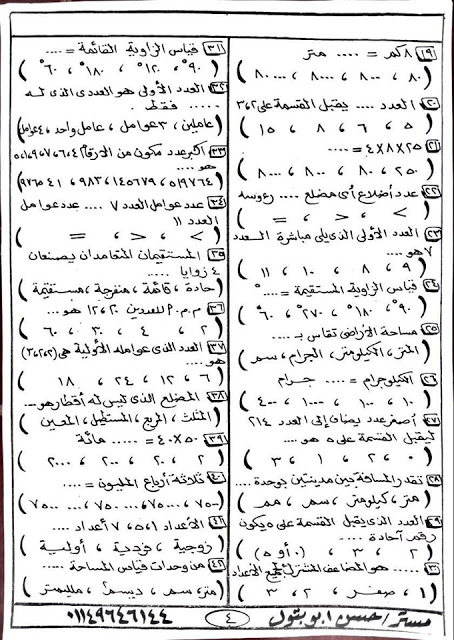 ١٩ ٨ كم = .... متر
( ٨٠ ، ٨٠٠ ، ٨٠٠٠ ، ٨٠٠٠٠ )
٢٠ العدد .... يقبل القسمة على ٢ ، ٣
( ٥ ، ٦ ، ٨ ، ١٥ )
٢١ ٢٥ × ٨ × ٤ = ....
( ٢٥٠ ، ٨٠ ، ٨٠٠ ، ٨٠٠٠ )
٢٢ عدد أضلاع أى مضلع .... رءوسه
( < ، > ، = )
٢٣ العدد الأولى الذى يلى مباشرة العدد
٧ هو ....
( ٩ ، ٨ ، ١٠ ، ١١ )
٢٤ قياس الزاوية المستقيمة = ....°
( ٩٠° ، ١٨٠° ، ٢٧٠° ، ٦٠° )
٢٥ مساحة الأراضى تقاس بـ ....
( المتر ، الكيلومتر ، الجرام ، سم )
٢٦ الكيلوجرام = .... جرام
( ١٠ ، ١٠٠ ، ١٠٠٠ ، ٤٠٠ )
٢٧ أصغر عدد يضاف إلى العدد ٢١٤
ليقبل القسمة على ٥ هو ....
( ٠ ، ٢ ، ١ ، ٣ )
٢٨ تقدر المسافة بين مدينتين بوحدة ....
( متر ، كيلومتر ، سم ، مم )
٢٩ العدد الذى يقبل القسمة على ٥ يكون
رقم آحاده ....
( ٢ ، ٣ ، ( ٠ أو ٥ ) )
٣٠ .... هو المضاعف المشترك لجميع الأعداد
( ١ ، صفر ، ٢ ، ٣ )
٣١ قياس الزاوية القائمة = ....
( ٩٠° ، ١٢٠° ، ١٨٠° ، ٦٠° )
٣٢ العدد الأولى هو العدد الذى له
..... فقط
( عاملين ، ٣ عوامل ، عامل واحد ، ٤ عوامل )
٣٣ أكبر عدد مكون من الأرقام
هو ....
٣٤ عدد عوامل العدد ٧ .... عدد عوامل
العدد ١١
( < ، > ، = )
٣٥ المستقيمان المتعامدان يصنعان
٤ زوايا ....
( حادة ، قائمة ، منفرجة ، مستقيمة )
٣٦ م.م.أ للعددين ٢٠ ، ١٢ هو ...
( ٢ ، ٤ ، ٣٠ ، ٦٠ )
٣٧ العدد الذى عوامله الأولية هى (٣،٢،٢)
هو ....
( ٦ ، ١٢ ، ٢٤ ، ١٨ )
٣٨ المضلع الذى ليس له أقطار هو ....
( المثلث ، المربع ، المستطيل ، المعين )
٣٩ ٥٠ × ٤٠ = ..... مائة
( ٢ ، ٢٠ ، ٢٠٠ ، ٢٠٠٠ )
٤٠ ثلاثة أرباع المليون = ....
٤١ الأعداد ١ ، ٥ ، ٧ أعداد ....
( زوجية ، فردية ، أولية )
٤٢ من وحدات قياس المساحة ....
مستر / حسن أبو بتول
٤
٠١١٤٩٦٤٦١٤٤